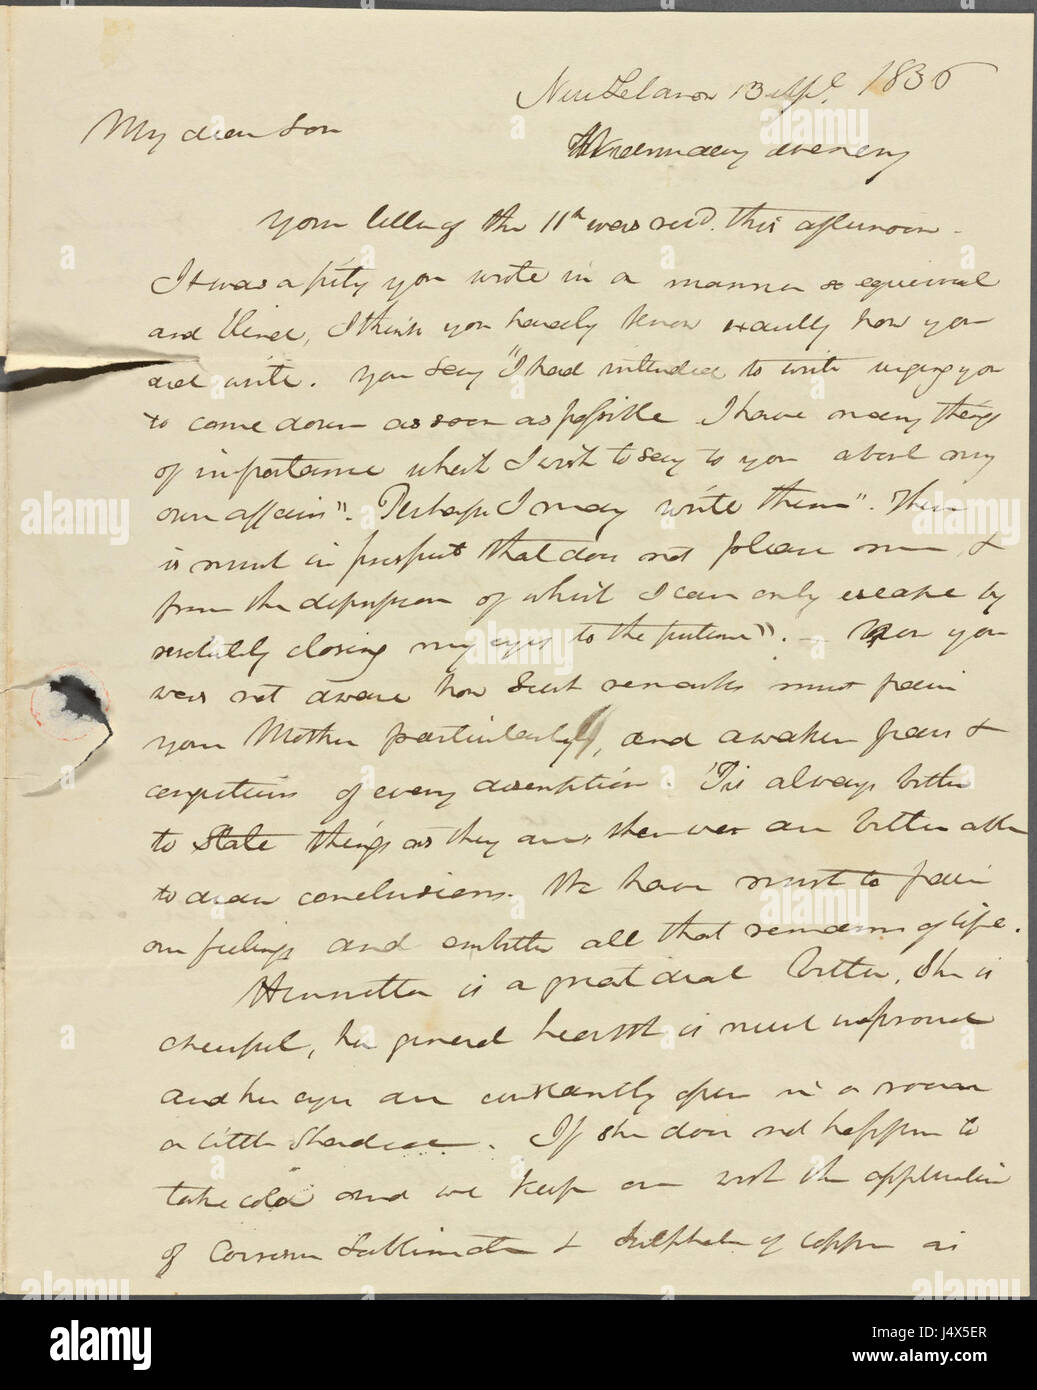 New Lebanon 13 Apl. 1836
My dear Son
Wednesday evening
Your letter of the 11th was recd. this afternoon.
It was a pity you wrote in a manner so equivocal
and blind, I think you hardly know exactly how you
did write. You say "I had intended to write urging you
to come down as soon as possible I have many things
of importance which I wish to say to you about my
own affairs". "Perhaps I may write them". "There
is much in prospect that does not please me, &
from the depression of which I can only escape by
resolutely closing my eyes to the future". – Now you
was not aware how such remarks must pain
your Mother particularly, and awaken fears &
conjectures of every description. 'Tis always better
to State things as they are, then we are better able
to draw conclusions. We have much to pain
our feelings and embitter all that remains of life.
Henrietta is a great deal better, She is
cheerful, her general health is much improved
and her eyes are constantly open in a room
a little Shaded. If she does not happen to
take cold and we keep on with the application
of Corrosive Sublimate & Sulphate of Copper as
alamy
a
alamy
Image ID: J4X5ER
www.alamy.com